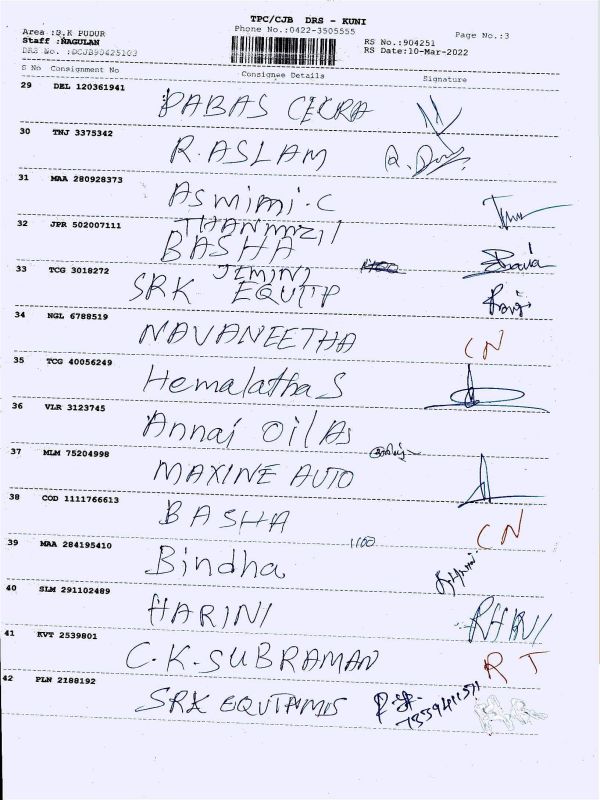 TPC/CJB DRS - KUNI
Phone No.:0422-3505555
Page No.:3
Area :B.K PUDUR
Staff :NAGULAN
DRS No. :DCJB90425103
RS No.:904251
RS Date:10-Mar-2022
S No Consignment No Consignee Details Signature
29 DEL 120361941
PABAS CEKRA
30 TNJ 3375342
R. ASLAM
31 MAA 280928373
Asmimi. C
32 JPR 502007111
BASHA
33 TCG 3018272
JEMINI
SRK EQUTP
34 NGL 6788519
NAVANEETHA CN
35 TCG 40056249
Hemalatha S
36 VLR 3123745
Annai Oil As
37 MLM 75204998
MAXINE AUTO
38 COD 1111766613
BASHA CN
1100
39 MAA 284195410
Bindha
40 SLM 291102489
HARINI
41 KVT 2539801
C.K.SUBRAMAN RT
42 PLN 2188192
SRK